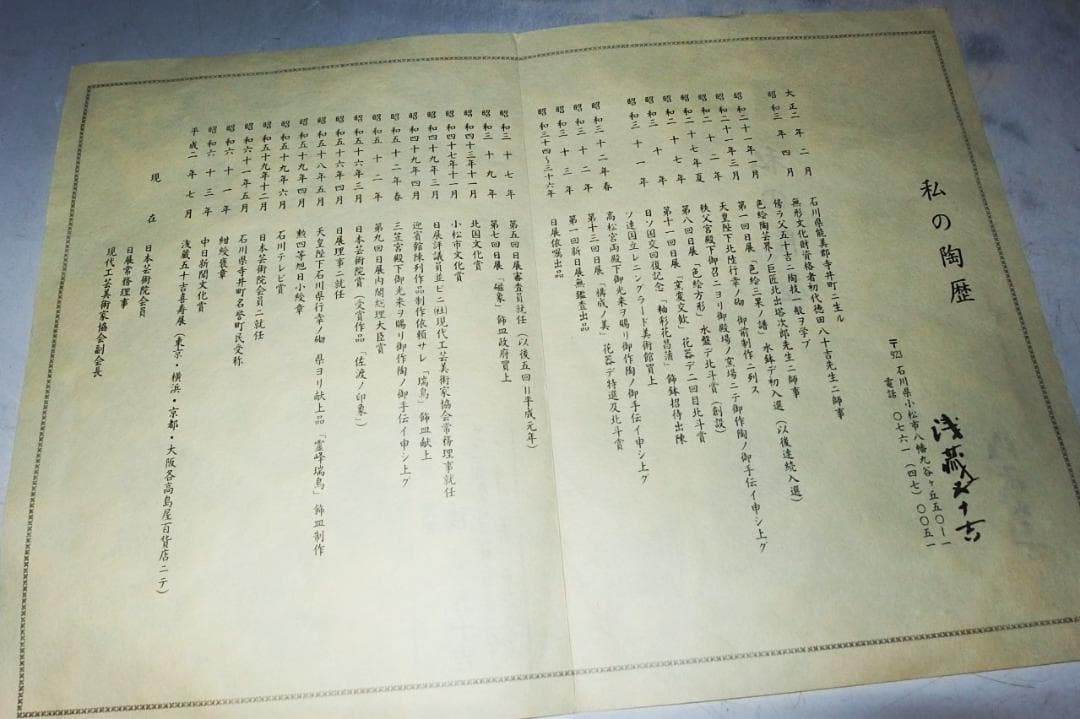 私の陶歴
浅蔵五十吉
〒923 石川県小松市八幡九谷ヶ丘五〇ー一
電話 〇七六一(四七)〇〇五一
大正二年二月 石川県能美郡寺井町ニ生ル
昭和三年四月 無形文化財資格者初代徳田八十吉先生ニ師事
傍ラ父五十吉ニ陶技一般ヲ学ブ
色絵陶芸界ノ巨匠北出塔次郎先生ニ師事
昭和二十一年一月 第一回日展「色絵三果ノ譜」水鉢デ初入選(以後連続入選)
昭和二十一年三月 天皇陛下北陸行幸ノ砌 御前制作ニ列ス
昭和二十二年 秩父宮殿下御召ニヨリ御殿場ノ窯場ニテ御作陶ノ御手伝イ申シ上グ
昭和二十七年夏 第八回日展「色絵方形」水盤デ北斗賞(創設)
昭和二十七年 第十一回日展「窯変交歓」花器デ二回目北斗賞
昭和三十年 日ソ国交回復記念「釉彩花菖蒲」飾鉢招待出陳
昭和三十一年 ソ連国立レニングラード美術館買上
昭和三十二年春 高松宮両殿下御光来ヲ賜リ御作陶ノ御手伝イ申シ上グ
昭和三十二年 第十三回日展「構成ノ美」花器デ特選及北斗賞
昭和三十三年 第一回新日展無鑑査出品
昭和三十四〜三十六年 日展依嘱出品
昭和三十七年 第五回日展審査員就任(以後五回/平成元年)
昭和三十九年 第七回日展「磁象」飾皿政府買上
昭和四十三年十一月 北国文化賞
昭和四十七年十一月 小松市文化賞
昭和四十九年三月 日展評議員並ビニ㈳現代工芸美術家協会常務理事就任
昭和四十九年四月 迎賓館陳列作品制作依頼サレ「瑞鳥」飾皿献上
昭和五十二年春 三笠宮殿下御光来ヲ賜リ御作陶ノ御手伝イ申シ上グ
昭和五十二年 第九回日展内閣総理大臣賞
昭和五十六年三月 日本芸術院賞(受賞作品「佐渡ノ印象」)
昭和五十六年四月 日展理事ニ就任
昭和五十八年五月 天皇陛下石川県行幸ノ砌 県ヨリ献上品「霊峰瑞鳥」飾皿制作
昭和五十九年四月 勲四等旭日小綬章
昭和五十九年六月 石川テレビ賞
昭和五十九年十二月 日本芸術院会員ニ就任
昭和六十一年五月 石川県寺井町名誉町民受称
昭和六十一年 紺綬褒章
昭和六十三年 中日新聞文化賞
平成二年七月 浅蔵五十吉喜寿展(東京・横浜・京都・大阪各高島屋百貨店ニテ)
現在 日本芸術院会員
日展常務理事
現代工芸美術家協会副会長